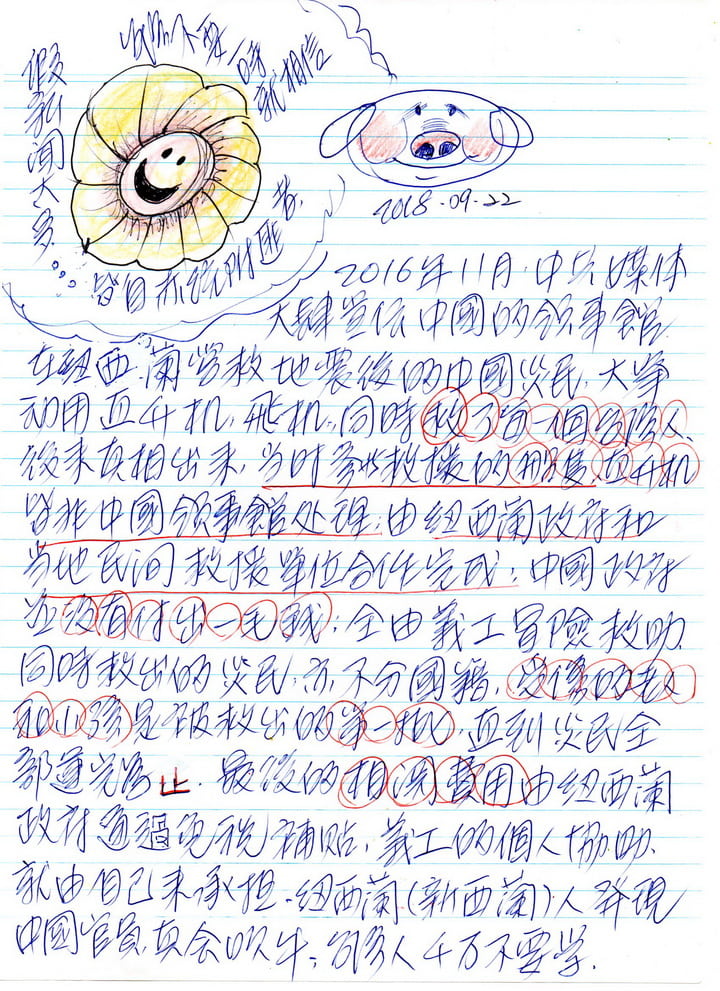 假新聞太多...
就相信
皆目 附匪
2018.09.22
2016年11月.中共媒体
大肆宣传中國的領事館
在紐西蘭営救地震後的中國災民,大筆
动用直升机,飛机,同時救了每一個台湾人、
後来真相出来,当时参於救援的 直升机
皆非中國領事館处理,由紐西蘭政府和
当地民间救援單位合作完成;中國政府
並没有付出一毛錢;全由義工冒險救助,
同時救出的災民,亦不分國籍,受傷的老人
和小孩是被救出的第一批,直到災民全
部運完為止.最後的相関費用由紐西蘭
政府通過免税補貼,義工的個人協助,
就由自己来承担.紐西蘭(新西蘭)人發現
中國官員真会吹牛,台湾人千万不要学.